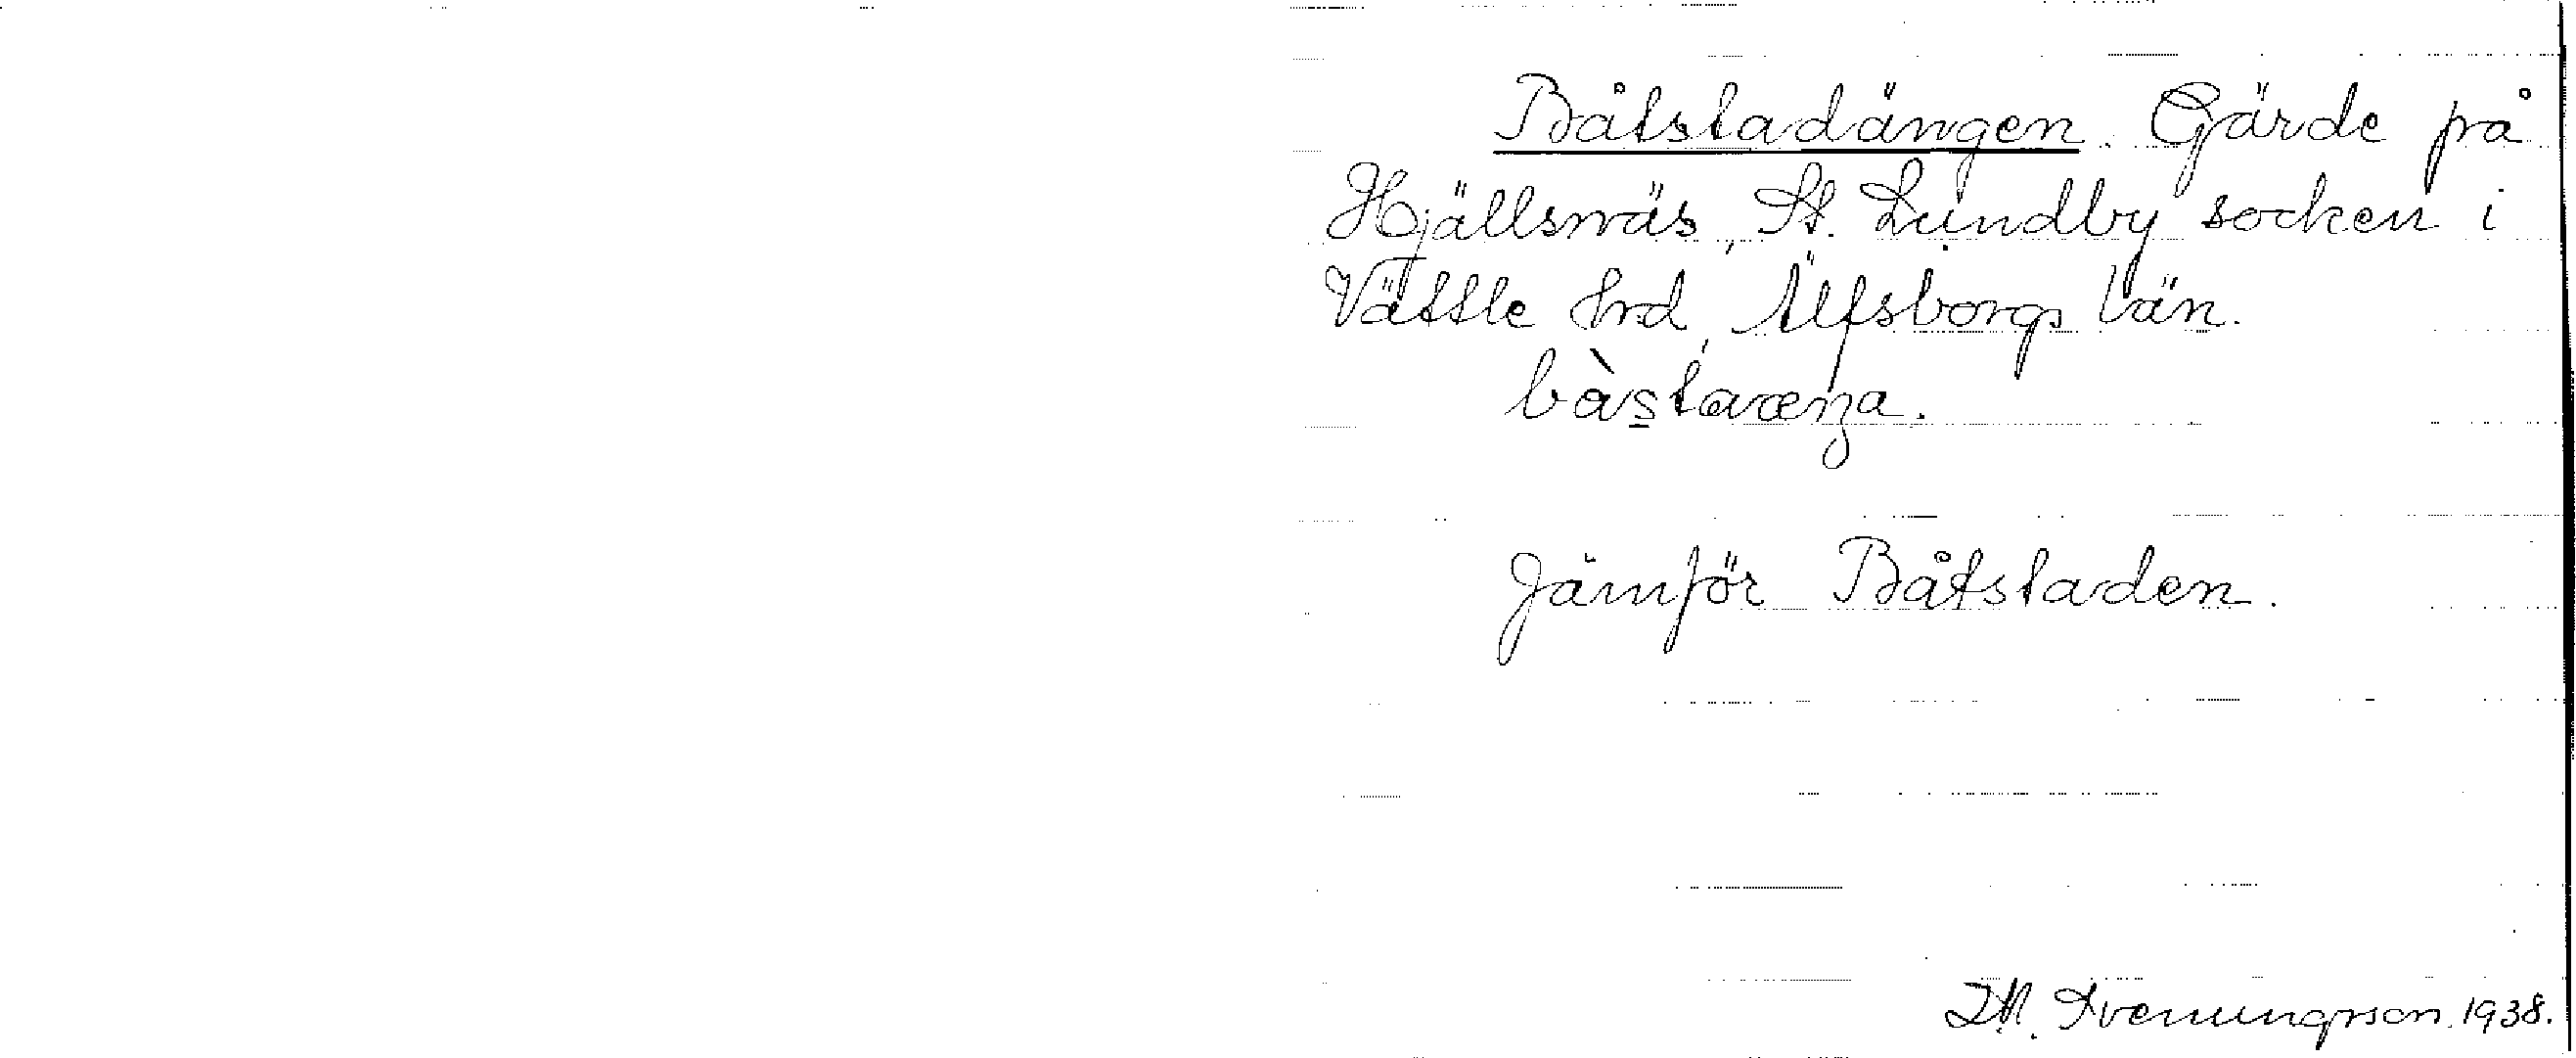 Båtstadängen. Gärde på
Hjällsnäs, St. Lundby socken i
Vättle hrd, Älfsborgs län.
bàstaræŋa.
Jämför Båtstaden.
Svenungsson. 1938.